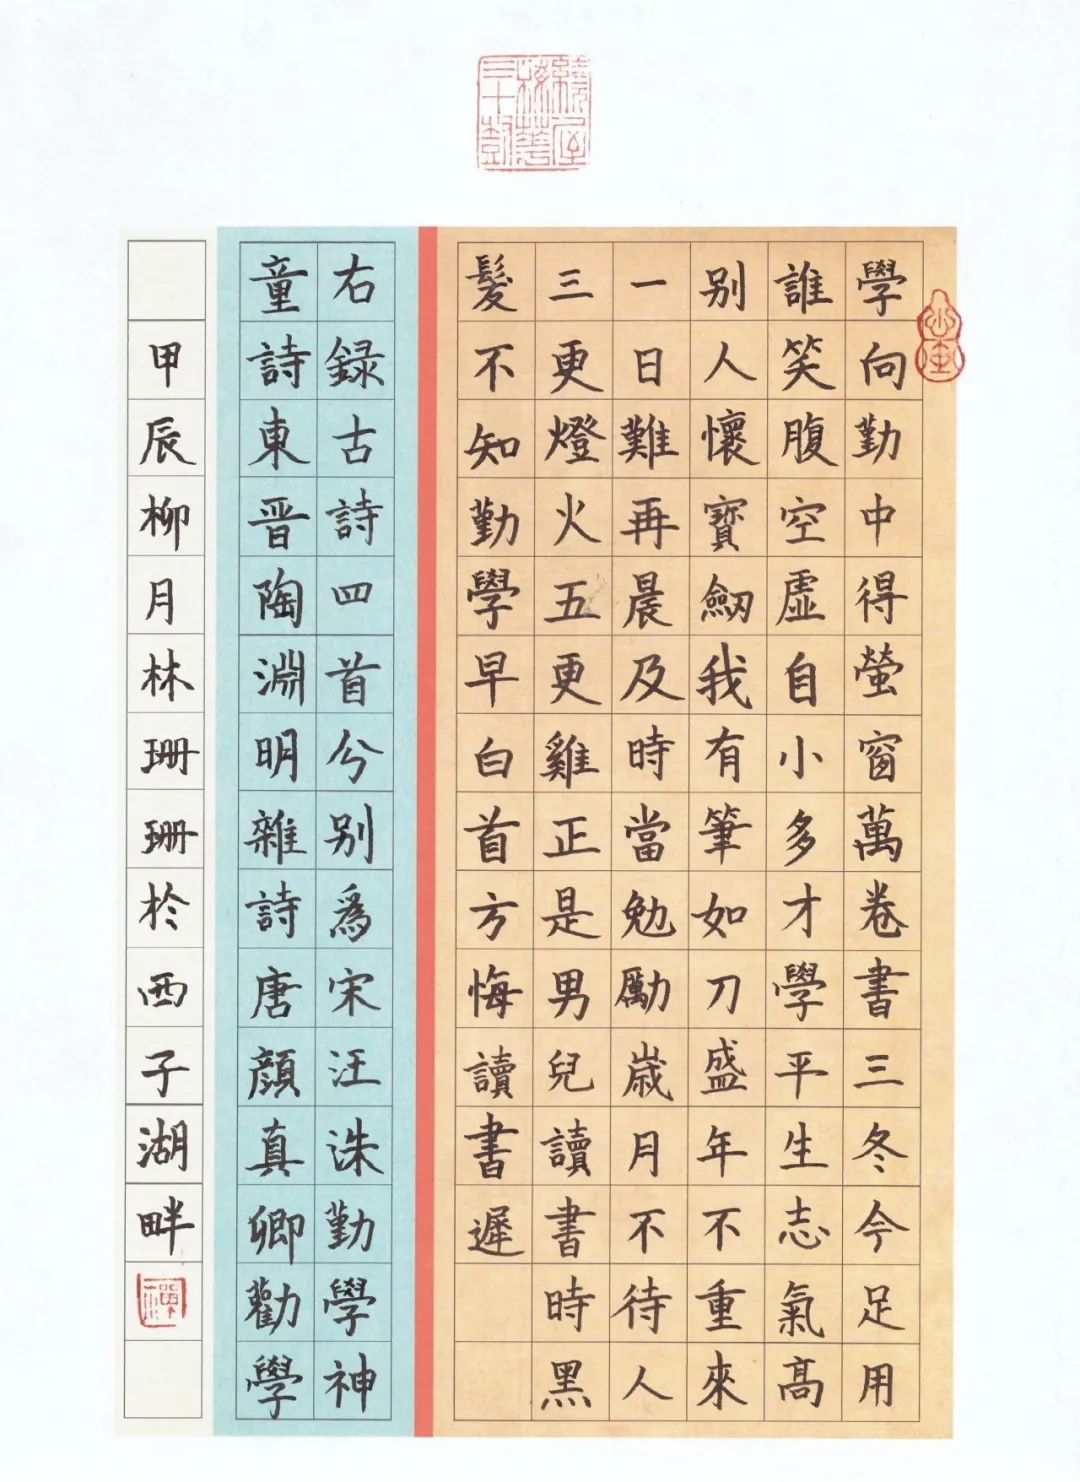 學向勤中得螢窗萬卷書三冬今足用
誰笑腹空虛自小多才學平生志氣高
别人懷寶劒我有筆如刀盛年不重來
一日難再晨及時當勉勵歲月不待人
三更燈火五更雞正是男兒讀書時黑
髮不知勤學早白首方悔讀書遲
右録古詩四首分别爲宋汪洙勤學神
童詩東晋陶淵明雜詩唐顔真卿勸學
甲辰柳月林珊珊於西子湖畔